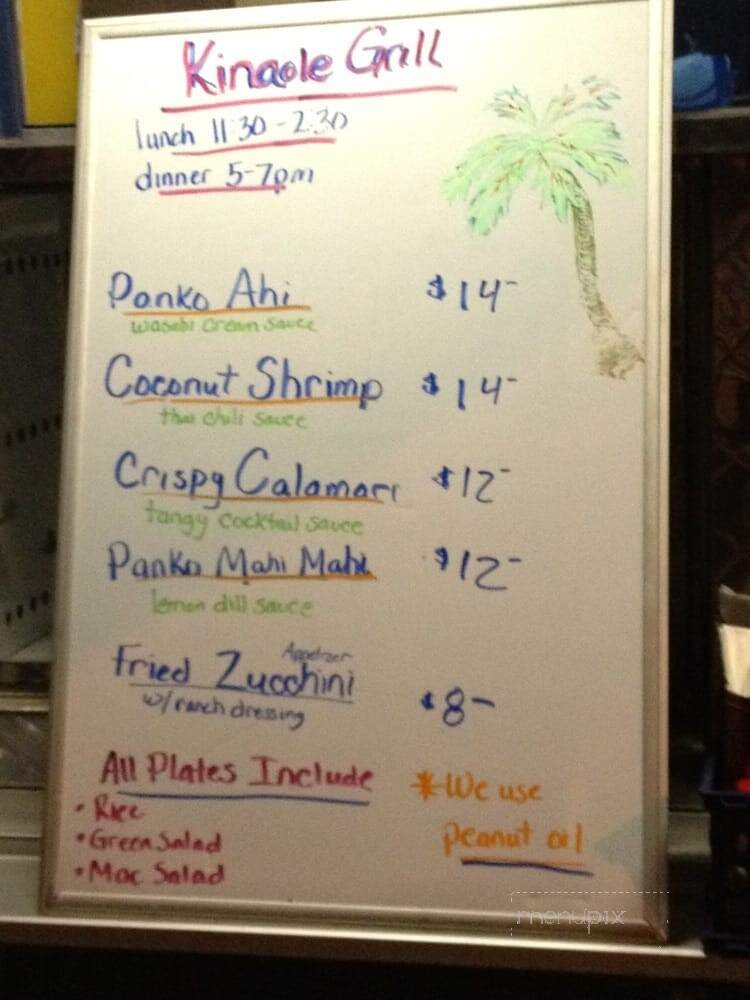 Kinaole Grill
lunch 11:30 - 2:30
dinner 5-7pm
Panko Ahi $14-
wasabi cream sauce
Coconut Shrimp $14-
thai chili sauce
Crispy Calamari $12-
tangy cocktail sauce
Panko Mahi Mahi $12-
lemon dill sauce
Appetizer
Fried Zucchini $8-
w/ ranch dressing
All Plates Include
• Rice
• Green Salad
• Mac Salad
*We use
peanut oil
menupix